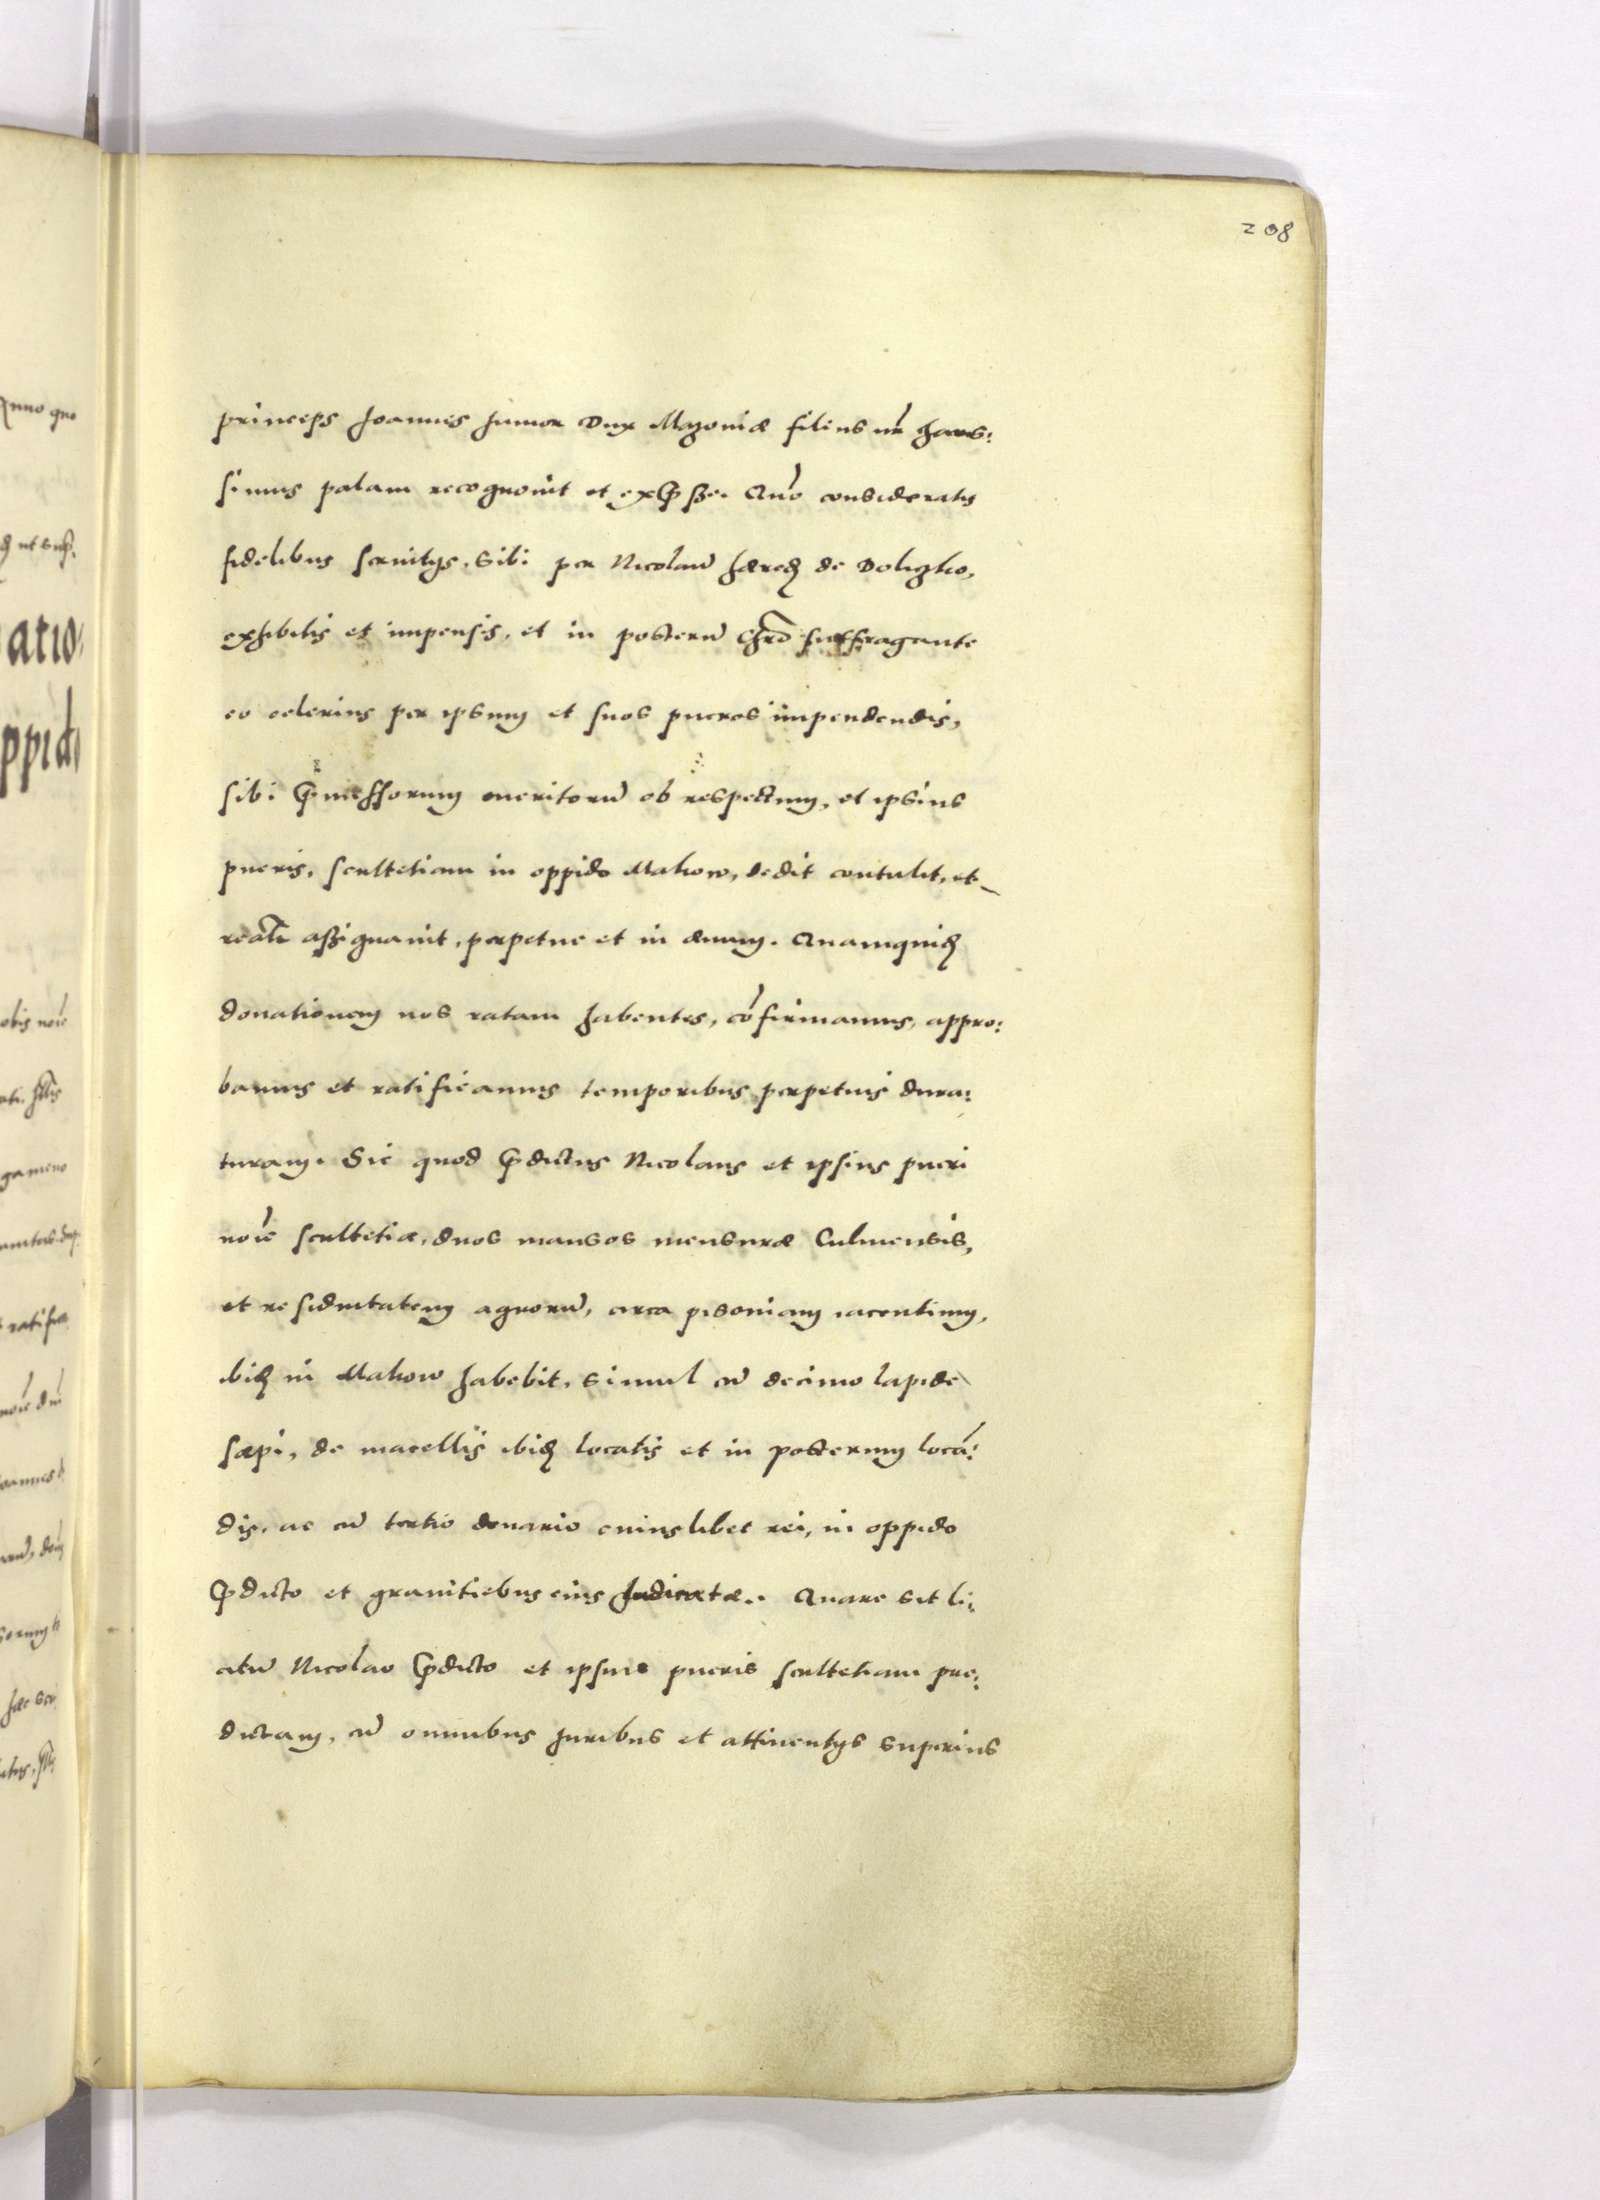 208
princeps Joannes Junior Dux Mazoviæ filius nr̃ charis:
simus palam recognovit et exp̃ße. Quo consideratis
fidelibus servitÿs, sibi per Nicolaũ hæred̃ de
exhibitis et impensis, et in posterũ Chrõ suffragante
eo celerius per ipsum et suos pueros impendendis,
sibi p̃missorum meritorũ ob respectum, et ipsius
pueris, scultetiam in oppido Makow, dedit contulit, et
realr̃ aßignavit, perpetue et in ævum. Quamquid̃
donationem nos ratam habentes, cõfirmamus, appro:
bamus et ratificamus temporibus perpetuis dura:
turam. Sic quod p̃dictus Nicolaus et ipsius pueri
noĩe scultetiæ, duos mansos mensuræ Culmensis,
et residuitatem agrorũ, circa pisoniam iacentium,
ibid̃ in Makow habebit, simul cũ decimo lapide
sæpi, de macellis ibid̃ locatis et in posterum locã:
dis, ac cũ tertio denario cuiuslibet rei, in oppido
p̃dicto et granitiebus eius Judicatæ. Quare sit li:
citũ Nicolao p̃dicto et ipsius pueris scultetiam præ:
dictam, cũ omnibus Juribus et attinentÿs superius
Anno quo
atio:
ppidi
obis noĩe
gameno
ratifica